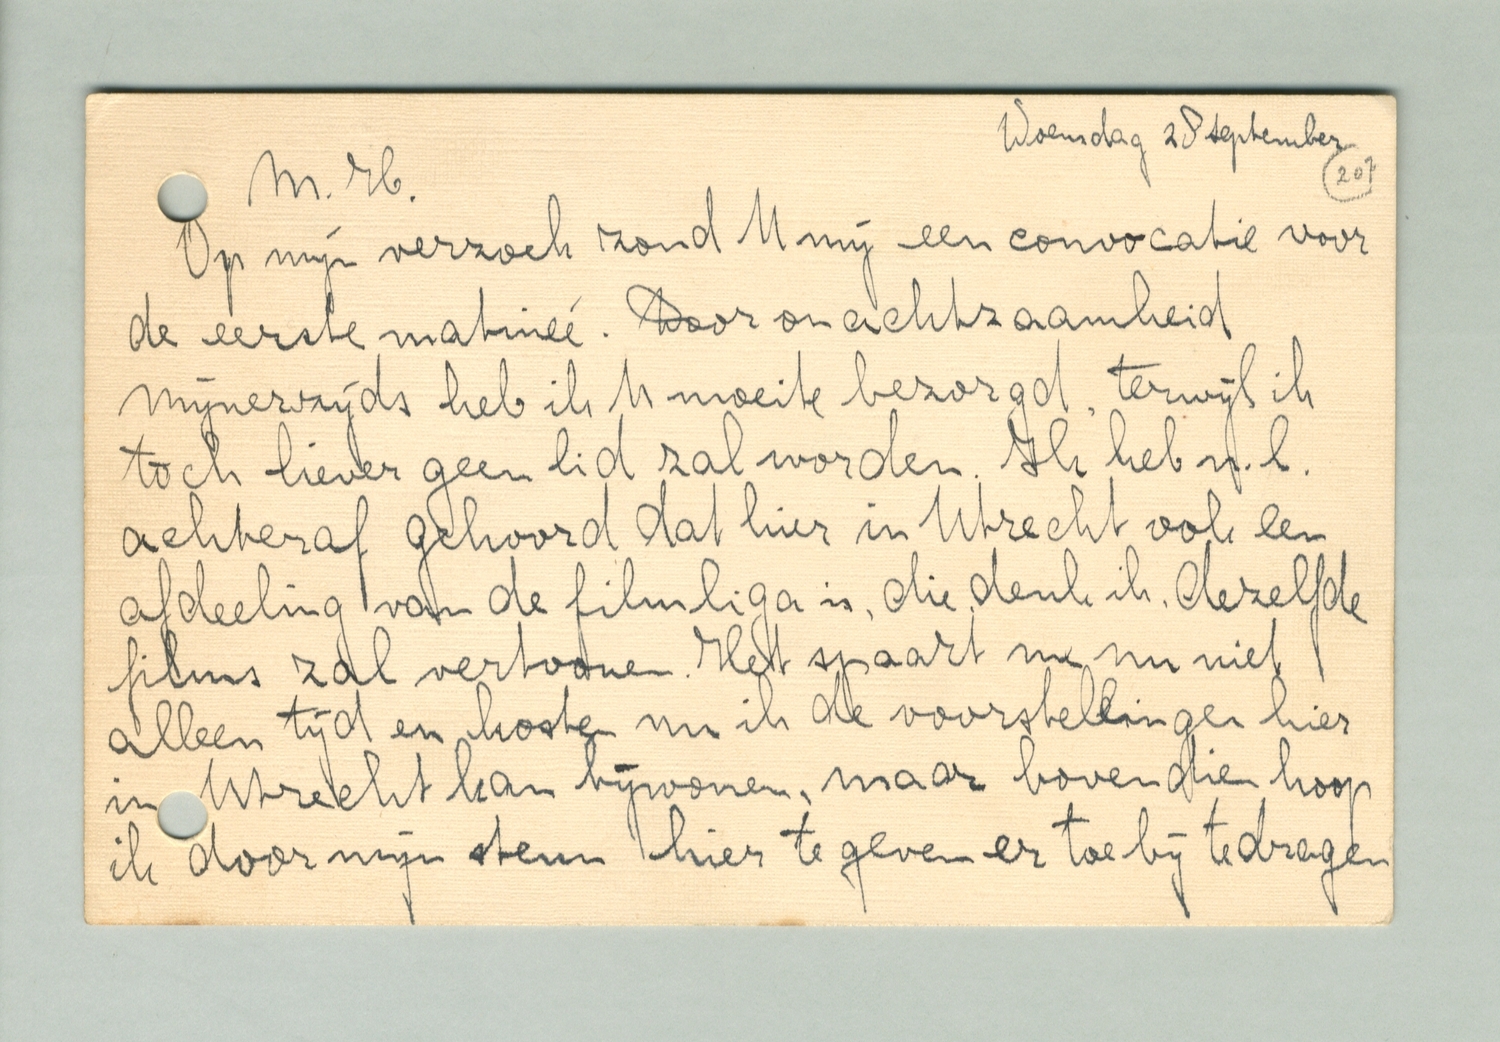 Woensdag 28 september
207
M. H.
Op mijn verzoek zond U mij een convocatie voor
de eerste matineé. Door onachtzaamheid
mijnerzijds heb ik U moeite bezorgd, terwijl ik
toch liever geen lid zal worden. Ik heb n.l.
achteraf gehoord dat hier in Utrecht ook een
afdeeling van de filmliga is, die, denk ik, dezelfde
films zal vertoonen. Het spaart me nu niet
alleen tijd en kosten nu ik de voorstellingen hier
in Utrecht kan bijwonen, maar bovendien hoop
ik door mijn steun hier te geven er toe bij te dragen